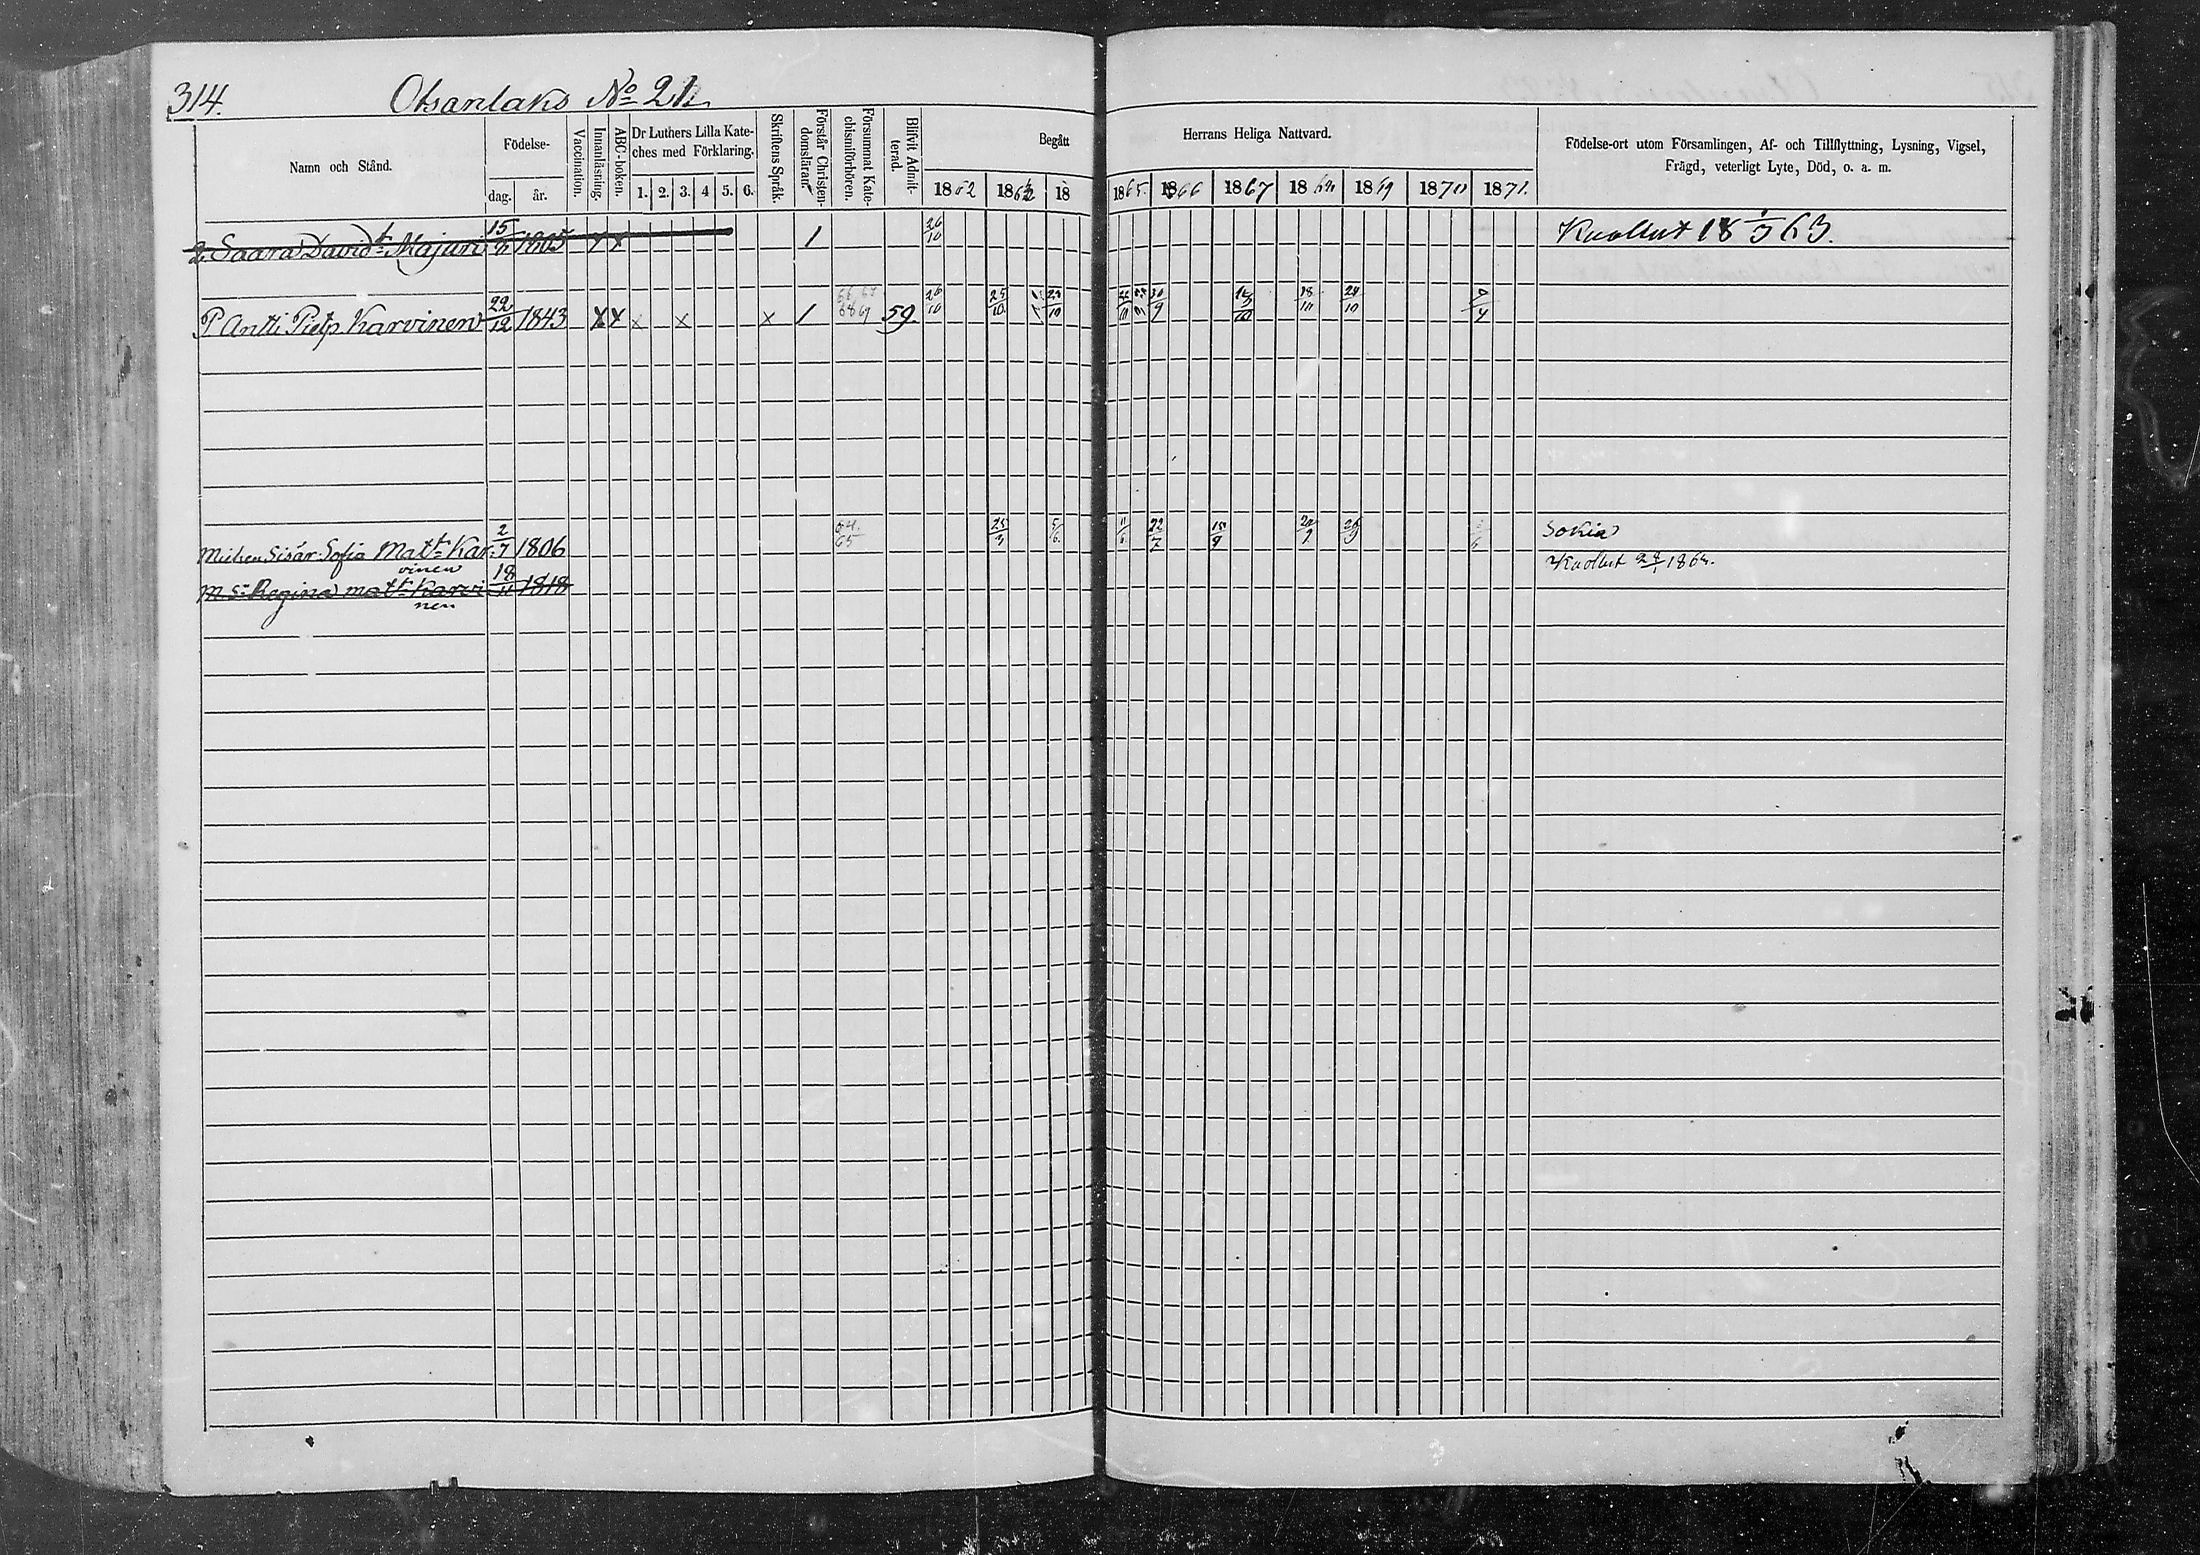 314. Oksanlaks No 21
Namn och Stånd.
Födelse-
dag.
år.
Vaccination.
Innanläsning.
ABC-boken.
Dr Luthers Lilla Kate-
ches med Förklaring.
1. 2. 3. 4 5. 6.
Skriftens Språk.
Förstår Christen-
domsläran
Försummat Kate-
chismiförhören.
Blifvit Admit-
terad.
Begått
Herrans Heliga Nattvard.
1862 1863 18 1865. 1866 1867 1868 1869 1870 1871.
Födelse-ort utom Församlingen, Af- och Tillflyttning, Lysning, Vigsel,
Frägd, veterligt Lyte, Död, o. a. m.
Saara Davidt Majuri 15 1805 1 26/10 Kuollut 18 1/5 63.
P Antti Pietp. Karvinen 22/12 1843 X X X X X 1 66 67 68 69 59. 26/10 25/10 23/10 22/10 30/9 24/10
Miehen Sisär Sofia Matt. Kar- 2/7 1806 64. 65 25/3 5/6. 11/6 22/7 15/9 Sokia
vinen
M Sr Regina Matt. Karvi 18/11 1818 Kuollut 28/1 186
nen